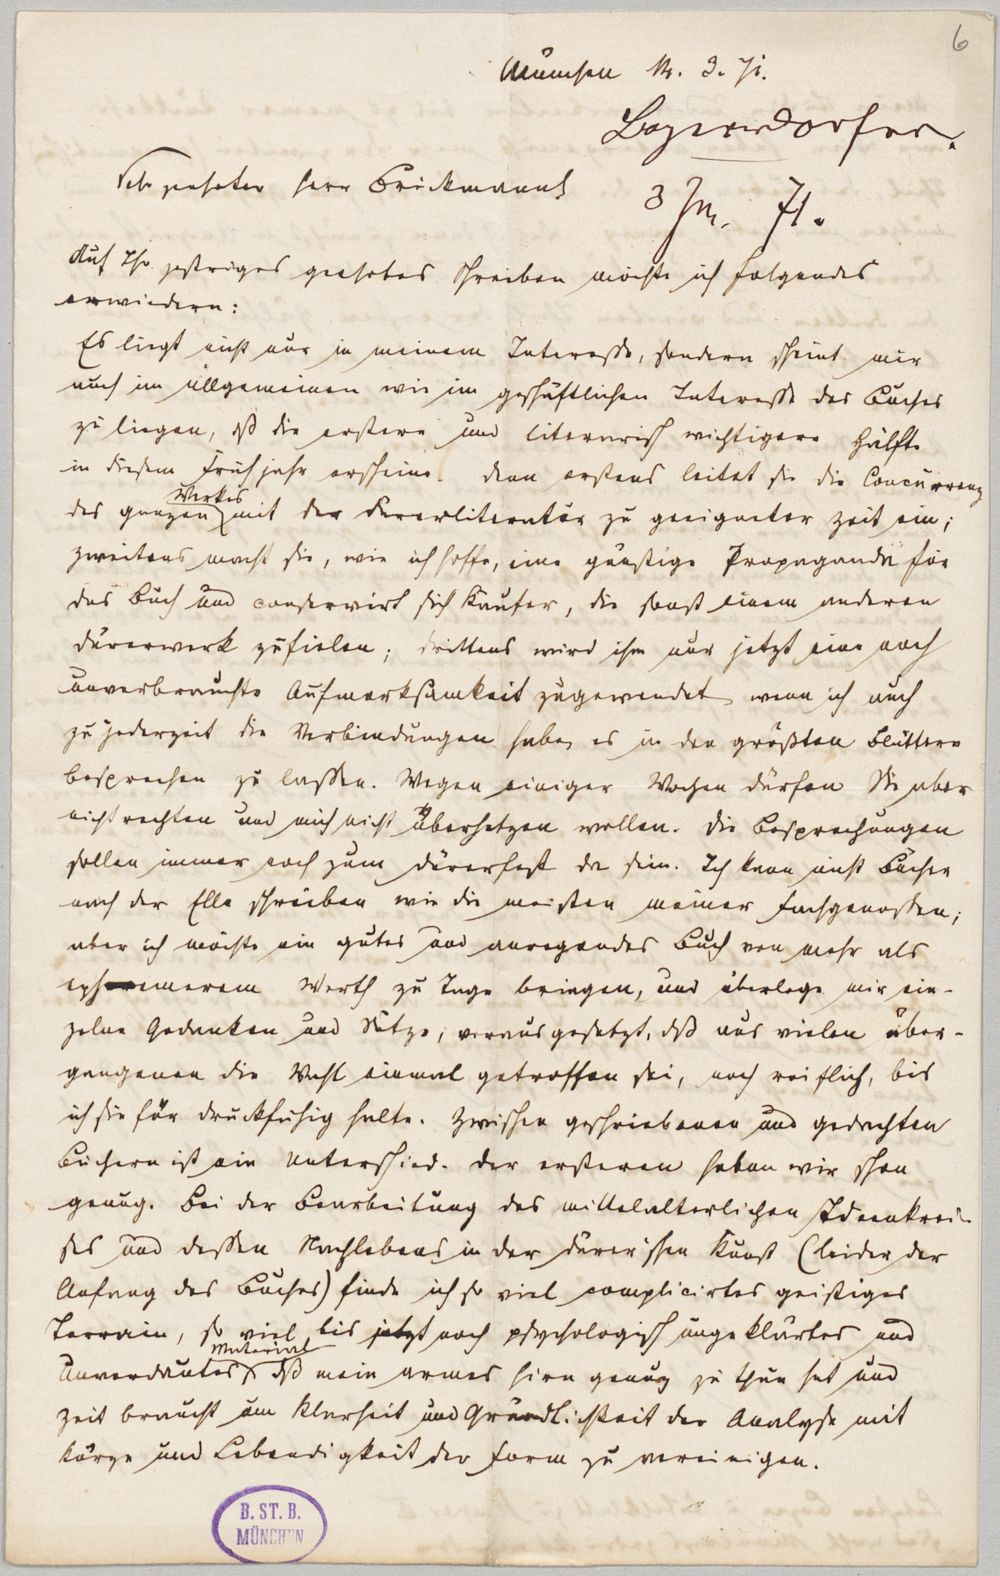 6
München 14. 3. 71.
Bayersdorfer.
Sehr geehrter Herr Brückmann!
3 71.
Auf Ihr gestriges geehrtes Schreiben möchte ich folgendes
erwiedern:
Es liegt nicht nur in meinem Interesse, sondern scheint mir
auch im allgemeinen wie im geschäftlichen Interesse des Buches
zu liegen, dß die erstere und literarisch wichtigere Hälfte
in diesem Frühjahr erscheine. Denn erstens leitet sie die Concurrenz
des ganzen Werkes mit der Dürerliteratur zu geeigneter Zeit ein;
zweitens macht sie, wie ich hoffe, eine günstige Propaganda für
das Buch und conservirt sich Käufer, die sonst einem anderen
Dürerwerk zufielen; drittens wird ihm nur jetzt eine noch
unverbrauchte Aufmerksamkeit zugewendet, wenn ich auch
zu jederzeit die Verbindungen habe, es in den größten Blättern
besprechen zu lassen. Wegen einiger Wochen dürfen Sie aber
nicht rechten und mich nicht überhetzen wollen. Die Besprechungen
sollen immer noch zum Dürerfest da sein. Ich kann nicht Bücher
nach der Elle schreiben wie die meisten meiner Fachgenossen;
aber ich möchte ein gutes und anregendes Buch von mehr als
ephemerem Werth zu Tage bringen, und überlege mir ein-
zelne Gedanken und Sätze, vorausgesetzt, dß aus vielen über-
gangenen die Wahl einmal getroffen sei, noch reiflich, bis
ich sie für druckfähig halte. Zwischen geschriebenen und gedachten
Büchern ist ein Unterschied. Der ersteren haben wir schon
genug. Bei der Bearbeitung des mittelalterlichen Ideenkrei-
ses und dessen Nachlebens in der Dürerischen Kunst (leider der
Anfang des Buches) finde ich so viel complicirtes geistiges
Terrain, so viel bis jetzt noch psychologisch ungeklärtes und
Unverdautes Material, dß mein armes Hirn genug zu thun hat und
Zeit braucht um Klarheit und Gründlichkeit der Analyse mit
Kürze und Lebendigkeit der Form zu vereinigen.
B. ST. B.
MÜNCHEN